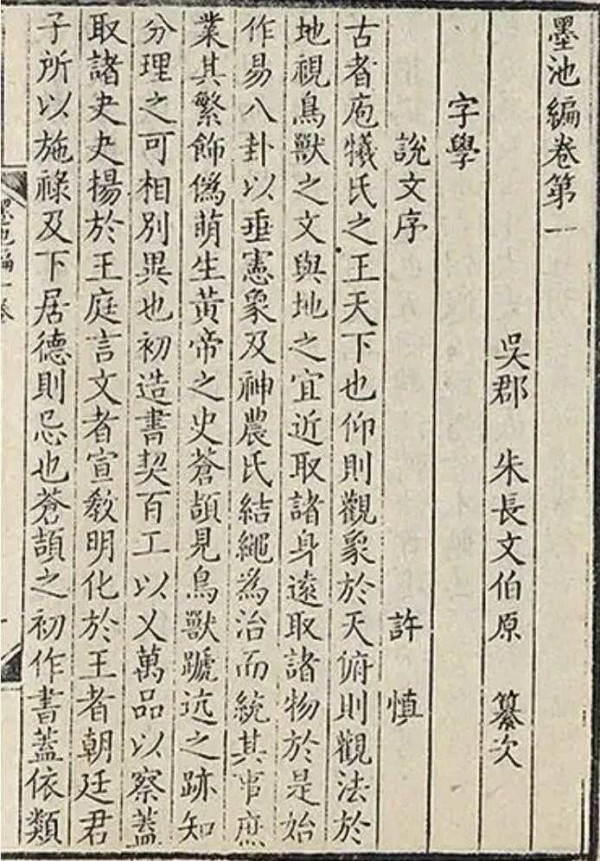 墨池編卷第一
吳郡 朱長文伯原 纂次
字學
說文序 許慎
古者庖犧氏之王天下也仰則觀象於天俯則觀法於
地視鳥獸之文與地之宜近取諸身遠取諸物於是始
作易八卦以垂憲象及神農氏結繩為治而統其事庶
業其繁飾僞萌生黃帝之史蒼頡見鳥獸蹏迒之跡知
分理之可相別異也初造書契百工以乂萬品以察蓋
取諸夬夬揚於王庭言文者宣敎明化於王者朝廷君
子所以施祿及下居德則忌也蒼頡之初作書蓋依類
墨池編一卷